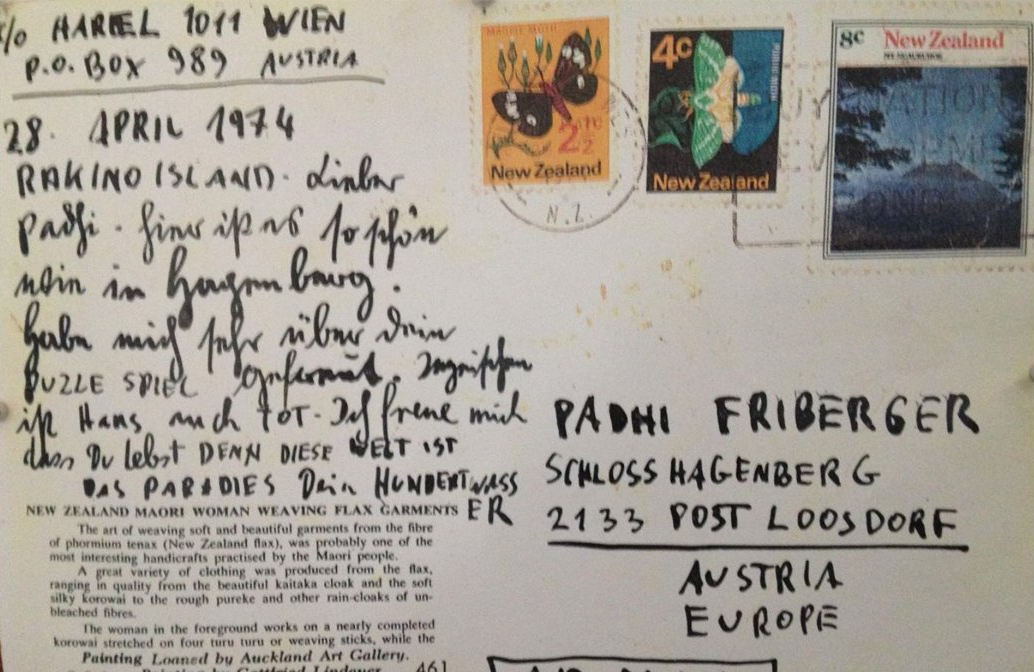 c/o HAREL 1011 WIEN
P.O. BOX 989 AUSTRIA
28. APRIL 1974
RAKINO ISLAND. Lieber
Padhi. hier ist es so schön
wie in Hagenberg.
habe mich sehr über dein
PUZLE SPIEL gefreut. Inzwischen
ist Hans auch TOT. Ich freue mich
dass Du lebst DENN DIESE WELT IST
DAS PARADIES Dein HUNDERTWASS
ER
NEW ZEALAND MAORI WOMAN WEAVING FLAX GARMENTS
The art of weaving soft and beautiful garments from the fibre
of phormium tenax (New Zealand flax), was probably one of the
most interesting handicrafts practised by the Maori people.
A great variety of clothing was produced from the flax,
ranging in quality from the beautiful kaitaka cloak and the soft
silky korowai to the rough pureke and other rain-cloaks of un-
bleached fibres.
The woman in the foreground works on a nearly completed
korowai stretched on four turu turu or weaving sticks, while the
Painting Loaned by Auckland Art Gallery.
Painting by Gottfried Lindauer
461
MAGPIE MOTH
2½c
New Zealand
N.Z.
4c
PURIRI MOTH
New Zealand
8c New Zealand
MT NGAURUHOE
PADHI FRIBERGER
SCHLOSS HAGENBERG
2133 POST LOOSDORF
AUSTRIA
EUROPE